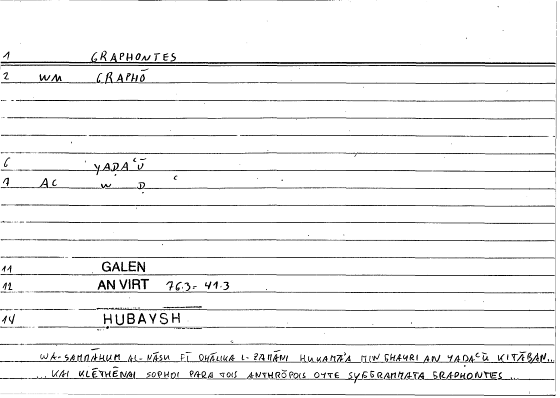 1 GRAPHONTES
2 WM GRAPHŌ
6 YAḌAʿŪ
7 AC W Ḍ ʿ
11 GALEN
12 AN VIRT 76.3 = 41.3
14 HUBAYSH
WA-SAMMĀHUM AL-NĀSU FĪ DHĀLIKA L-ZAMĀNI ḤUKAMĀʾA MIN GHAYRI AN YAḌAʿŪ KITĀBAN...
... KAI KLĒTHĒNAI SOPHOI PARA TOIS ANTHRŌPOIS OYTE SYGGRAMMATA GRAPHONTES ...